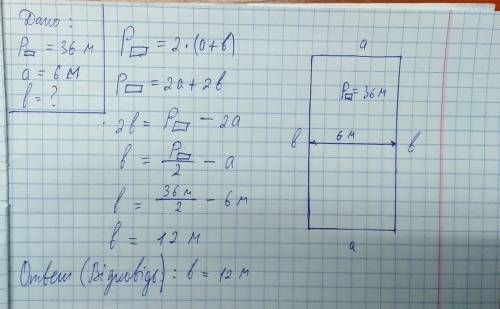 Дано:
P▭ = 36 м
a = 6 м
b = ?
P▭ = 2·(a+b)
P▭ = 2a+2b
2b = P▭ − 2a
b = P▭/2 − a
b = 36 м/2 − 6 м
b = 12 м
Ответ (Відповідь): b = 12 м
a
P▭ = 36 м
b 6 м b
a